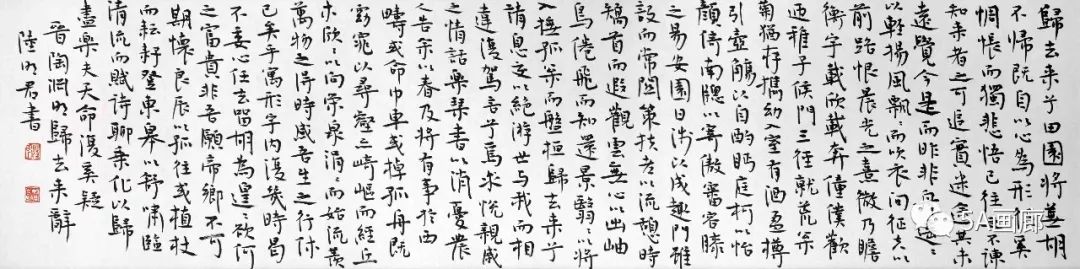 歸去来兮田園將蕪胡
不歸既自以心為形役奚
惆悵而獨悲悟已往之不諫
知来者之可追實迷途其未
遠覺今是而昨非舟遙
以輕揚風飄飄而吹衣問征夫以
前路恨晨光之熹微乃瞻
衡宇載欣載奔僮僕歡
迎稚子候門三徑就荒松
菊猶存携幼入室有酒盈樽
引壺觴以自酌眄庭柯以怡
顏倚南牕以寄傲審容膝
之易安園日涉以成趣門雖
設而常關策扶老以流憩時
矯首而遐觀雲無心以出岫
鳥倦飛而知還景翳翳以將
入撫孤松而盤桓歸去来兮
請息交以絕游世与我而相
違復駕言兮焉求悅親戚
之情話樂琴書以消憂農
人告余以春及將有事於西
疇或命巾車或棹孤舟既
窈窕以尋壑亦崎嶇而經丘
木欣欣以向榮泉涓涓而始流羨
萬物之得時感吾生之行休
已矣乎寓形宇内復幾時曷
不委心任去留胡為遑遑欲何
之富貴非吾願帝鄉不可
期懷良辰以孤往或植杖
而耘耔登東皋以舒嘯臨
清流而賦詩聊乘化以歸
盡樂夫天命復奚疑
晉陶淵明歸去来辭
陸明君書
5A画廊